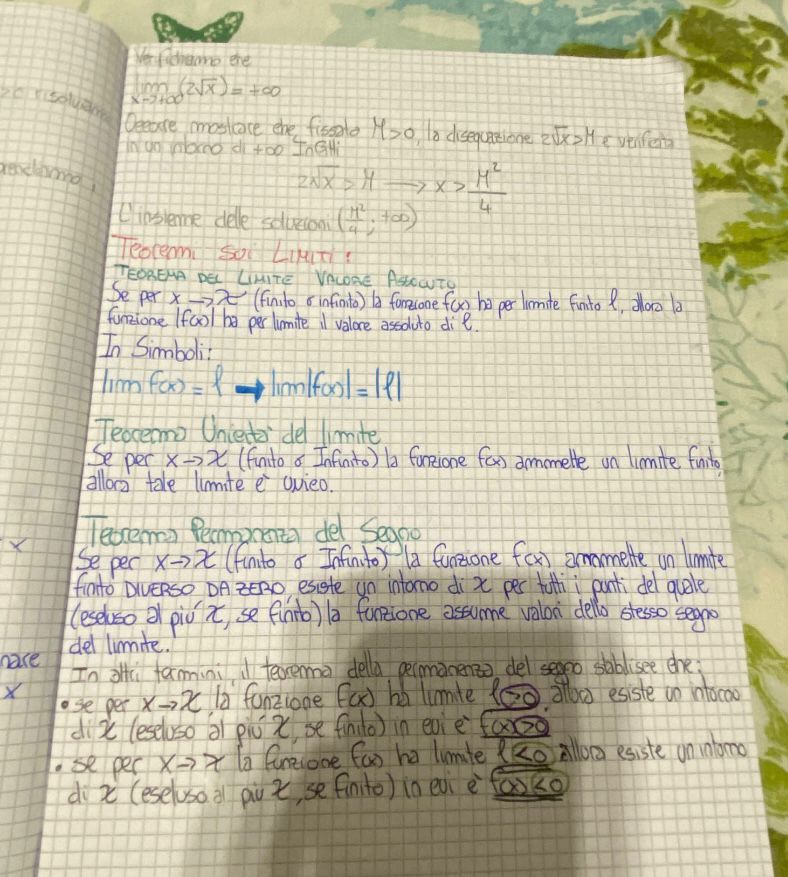 Verifichiamo che
lim (2√x) = +∞
x→+∞
Occorre mostrare che, fissato M>0, la disequazione 2√x>M è verificata
in un intorno di +∞
2√x > M → x > M²/4
L'insieme delle soluzioni (M²/4; +∞)
Teoremi sui LIMITI:
TEOREMA DEL LIMITE VALORE ASSOLUTO
Se per x → x (finito o infinito) la funzione f(x) ha per limite finito l, allora la
funzione |f(x)| ha per limite il valore assoluto di l.
In Simboli:
lim f(x) = l → lim|f(x)| = |l|
Teorema Unicità del limite
Se per x → x (finito o Infinito) la funzione f(x) ammette un limite finito,
allora tale limite è unico.
Teorema Permanenza del Segno
Se per x → x (finito o Infinito) la funzione f(x) ammette un limite
finito DIVERSO DA ZERO, esiste un intorno di x per tutti i punti del quale
(escluso al più x, se finito) la funzione assume valori dello stesso segno
del limite.
In altri termini, il teorema della permanenza del segno stabilisce che:
• se per x → x la funzione f(x) ha limite l>0, allora esiste un intorno
di x (escluso al più x, se finito) in cui è f(x)>0
• se per x → x la funzione f(x) ha limite l<0 allora esiste un intorno
di x (escluso al più x, se finito) in cui è f(x)<0
x
nare
x